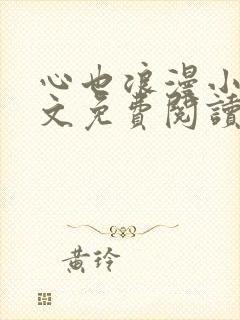 心也浪漫小
文免費閱讀
黃玲